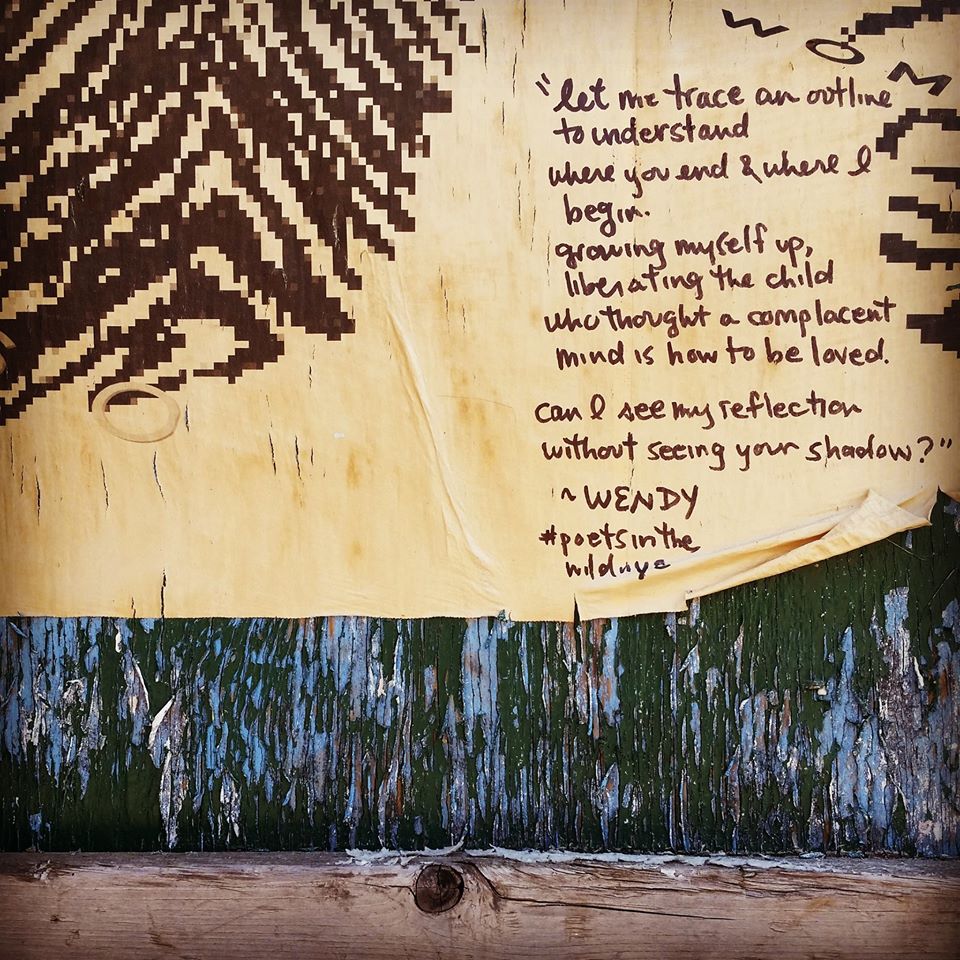 WOM
"let me trace an outline
to understand
where you end & where I
begin.
growing myself up,
liberating the child
who thought a complacent
mind is how to be loved.
can I see my reflection
without seeing your shadow?"
~ WENDY
#poetsinthe
wildnyc